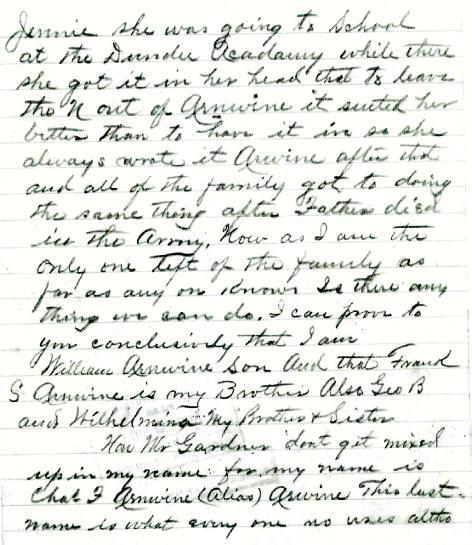 Jennie she was going to School
at the Dundee Acadamy while there
she got it in her head that to leave
the N out of Arnwine it suited her
better than to have it in so she
always wrote it Arwine after that
and all of the family got to doing
the same thing after Father died
in the Army, Now as I am the
only one left of the family as
far as any on knows Is there any
thing we can do. I can prove to
you conclusively that I am
William Arnwine Son And that Frank
S Arnwine is my Brother Also Geo B
and Wilhelmina My Brother & Sister
Now Mr Gardner dont get mixed
up in my name for my name is
Chas F Arnwine (Alias) Arwine This last
name is what every one no uses altho